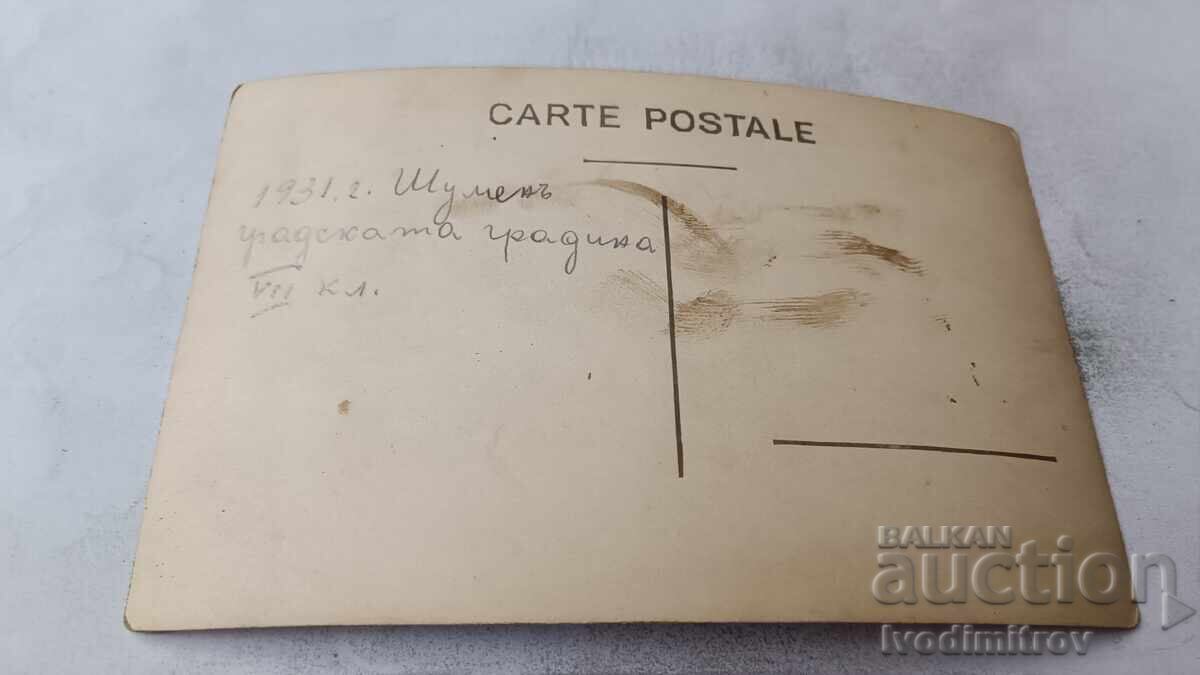 CARTE POSTALE
1931. г. Шуменъ
градската градина
VII кл.
BALKAN
auction
Ivodimitrov